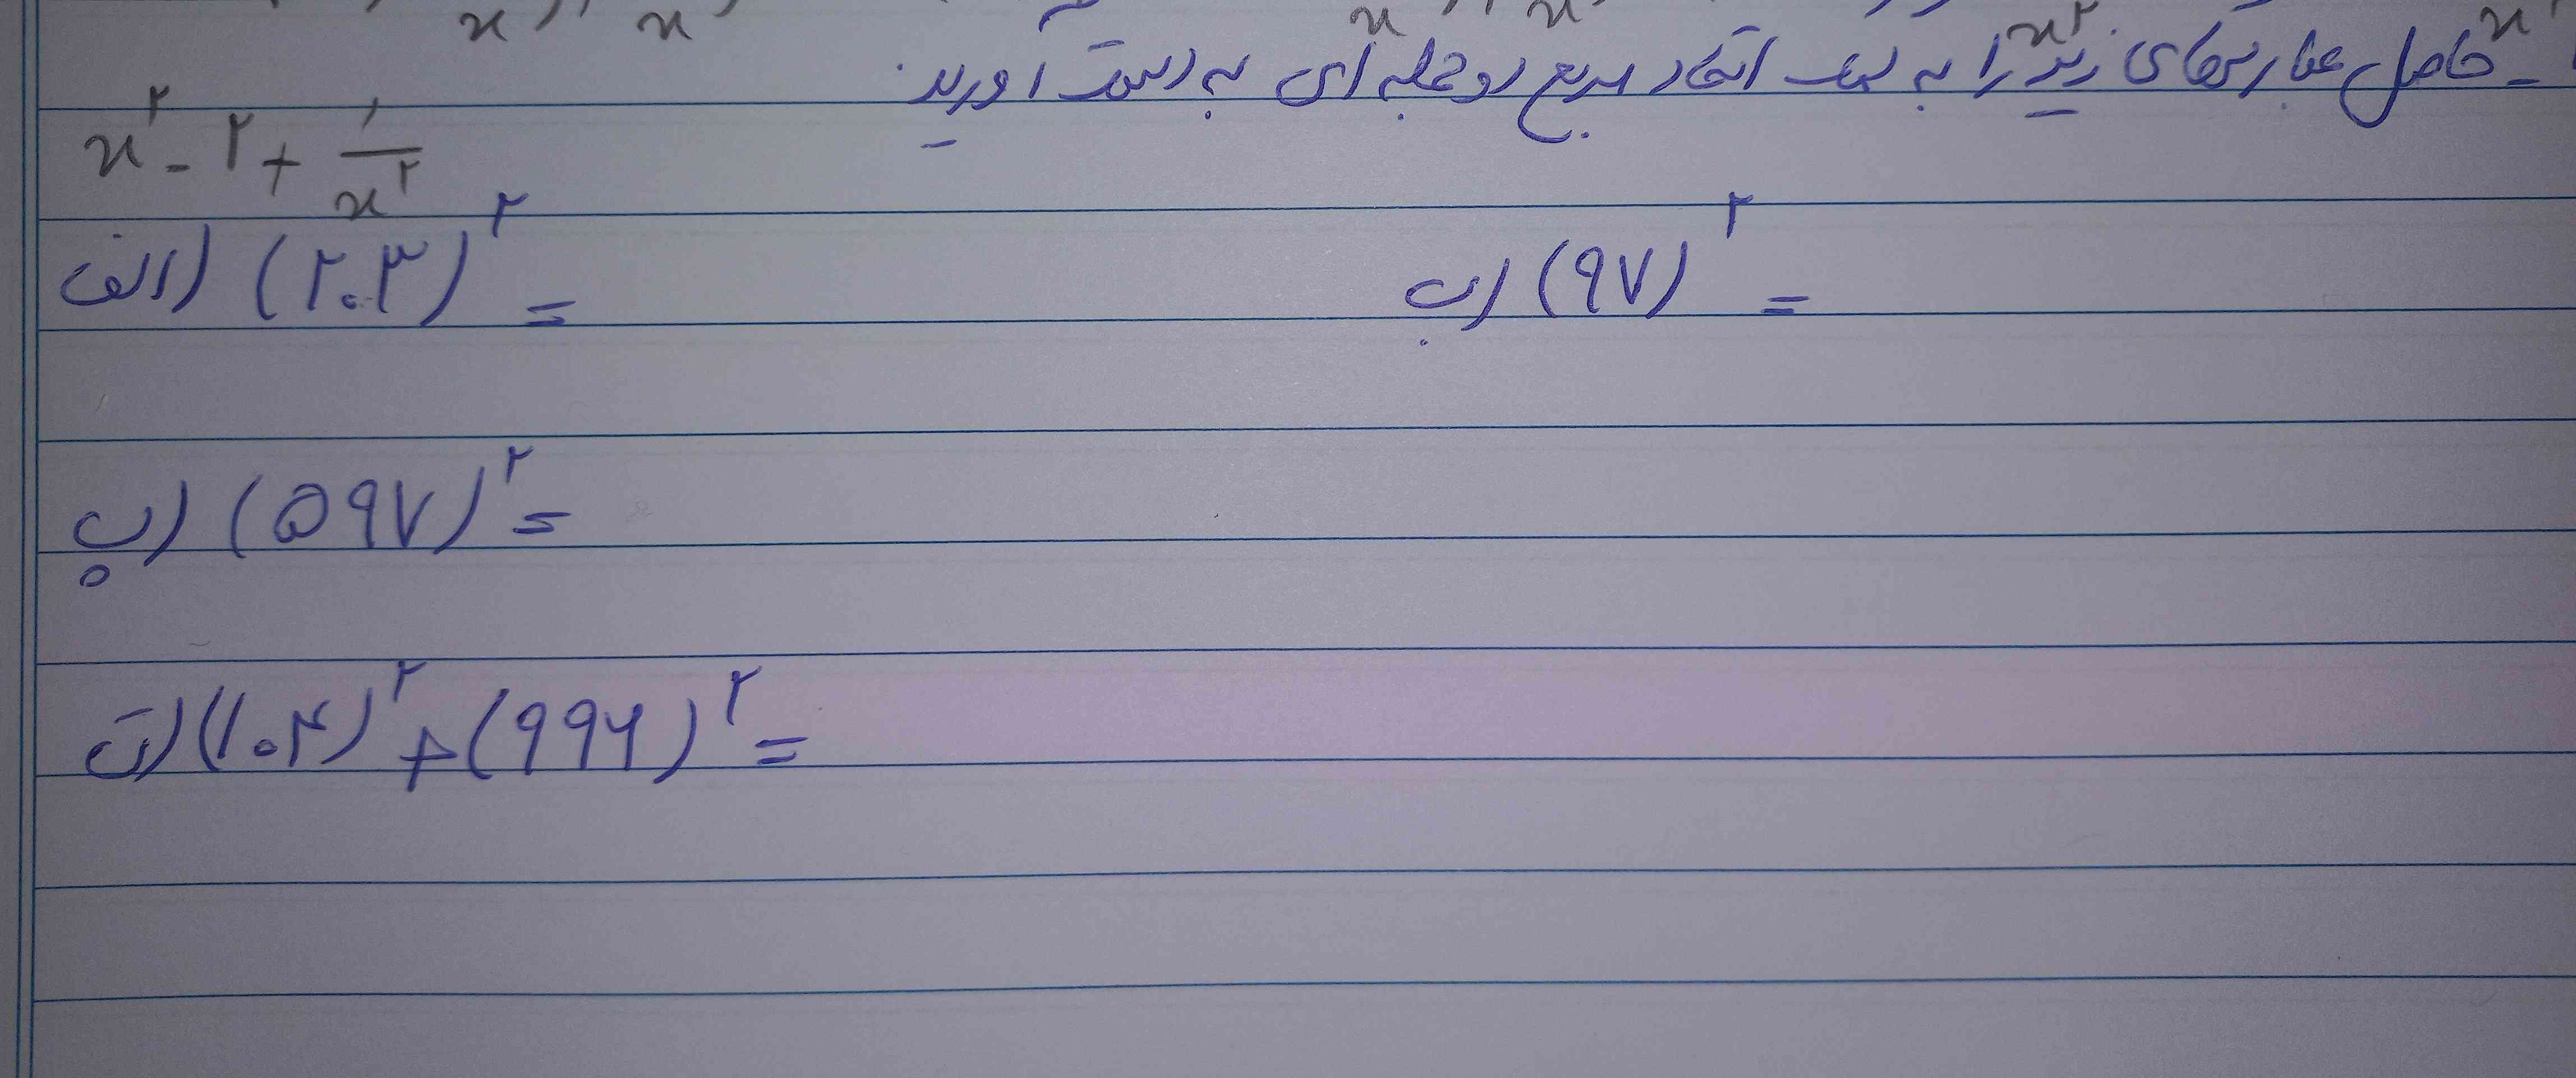 حاصل عبارت‌های زیر را به کمک اتحاد مربع دو جمله ای به دست آورید.
x^۲ - ۲ + ۱/x^۲
الف) (۲۰۳)^۲ =
ب) (۹۷)^۲ =
پ) (۵۹۷)^۲ =
ت) (۱۰۴)^۲ + (۹۹۶)^۲ =